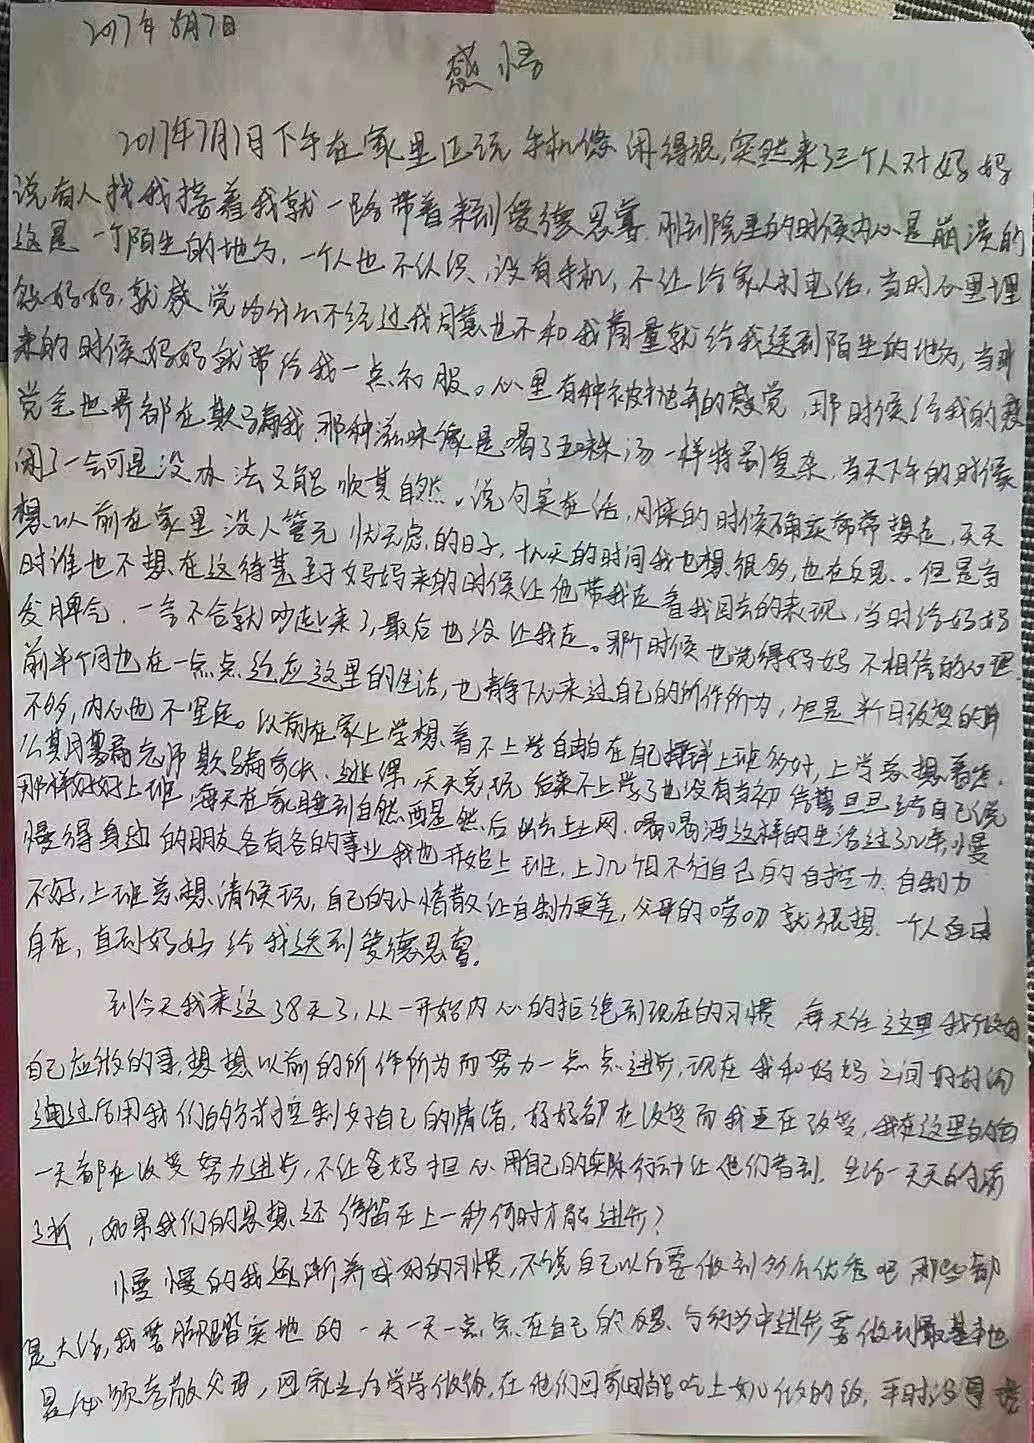 2017年8月7日
感悟
2017年7月1日下午在家里正玩手机像闲得很,突然来了三个人对妈妈
说有人找我接着我就一路带着来到爱德思睿.刚到院里的时候内心是崩溃的
这是一个陌生的地方,一个人也不认识,没有手机,不让给家人打电话,当时心里埋
妈妈,就感觉为什么不经过我同意也不和我商量就给我送到陌生的地方,当时
来的时候妈妈就带给我一点衣服。心里有种被抛弃的感觉,那时候给我的感
觉全世界都在欺骗我,那种滋味像是喝了五味汤一样特别复杂,当天下午的时候
闹了一会可是没办法只能顺其自然。说句实在话,刚来的时候确实常常想走,天天
想以前在家里没人管无忧无虑的日子,十几天的时间我也想很多,也在反思..但是当
时谁也不想在这待甚至于妈妈来的时候让他带我走看我回去的表现,当时给妈妈
发脾气,一言不合就吵起来了,最后也没让我走。那个时候也觉得妈妈不相信的心理.
前半个月也在一点点适应这里的生活,也静下心来过自己的所作所为,但是半月改变的
不多,内心也不坚定。以前在家上学想着不上学自由自在上班多好,上学总想着
老师欺骗家长、逃课,天天光玩后来不上学了也没有当初信誓旦旦给自己说
那样好好上班,每天在家睡到自然醒然后出去上网,喝喝酒这样的生活过了几年,慢
慢得身边的朋友各有各的事业我也开始上班,上几个月不行自己的自控力自制力
不好,上班总想请假玩,自己的小懒散让自制力更差,父母的唠叨就很想一个人自由
自在,直到妈妈给我送到爱德思睿。
到今天我来这38天了,从一开始内心的拒绝到现在的习惯,每天在这里我做好
自己应做的事,想想以前的所作所为而努力一点点进步,现在我和妈妈之间好好沟
通过后用我们的方式控制好自己的情绪,妈妈都在改变而我更在改变,我在这里的每
一天都在改变努力进步,不让爸妈担心用自己的实际行动让他们看到.生活一天天的流
逝,如果我们的思想还停留在上一秒何时才能进步?
慢慢的我逐渐养成好的习惯,不说自己以后要做到多么优秀吧那些都
是大话,我要脚踏实地的一天一天一点点在自己的反思与行为中进步要做到最基本也
是必须孝敬父母,回家之后学学做饭,在他们回家时能吃上如心做的饭,平时没事